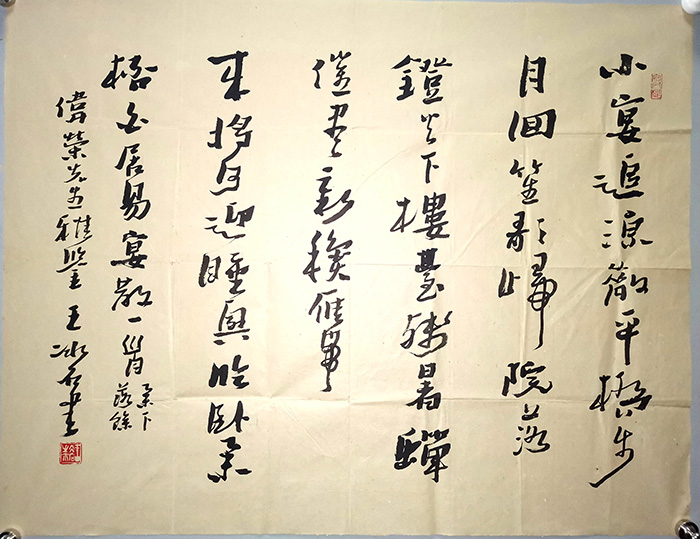 小宴追涼散平橋步
月回笙歌歸院落
鐙火下樓臺殘暑蟬
催盡新穐雁帶
來將何迎睡興臨卧舉
桮白居易宴散一首 舉下落餘
偉榮先生雅鑒 王冰石書